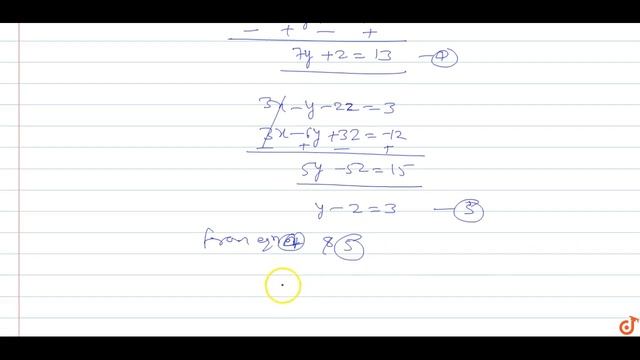 − + − +
7y + 2 = 13 — ④
3x − y − 2z = 3
3x − 6y + 3z = −12
− + − +
5y − 5z = 15
y − z = 3 — ⑤
from eqn ④ & ⑤